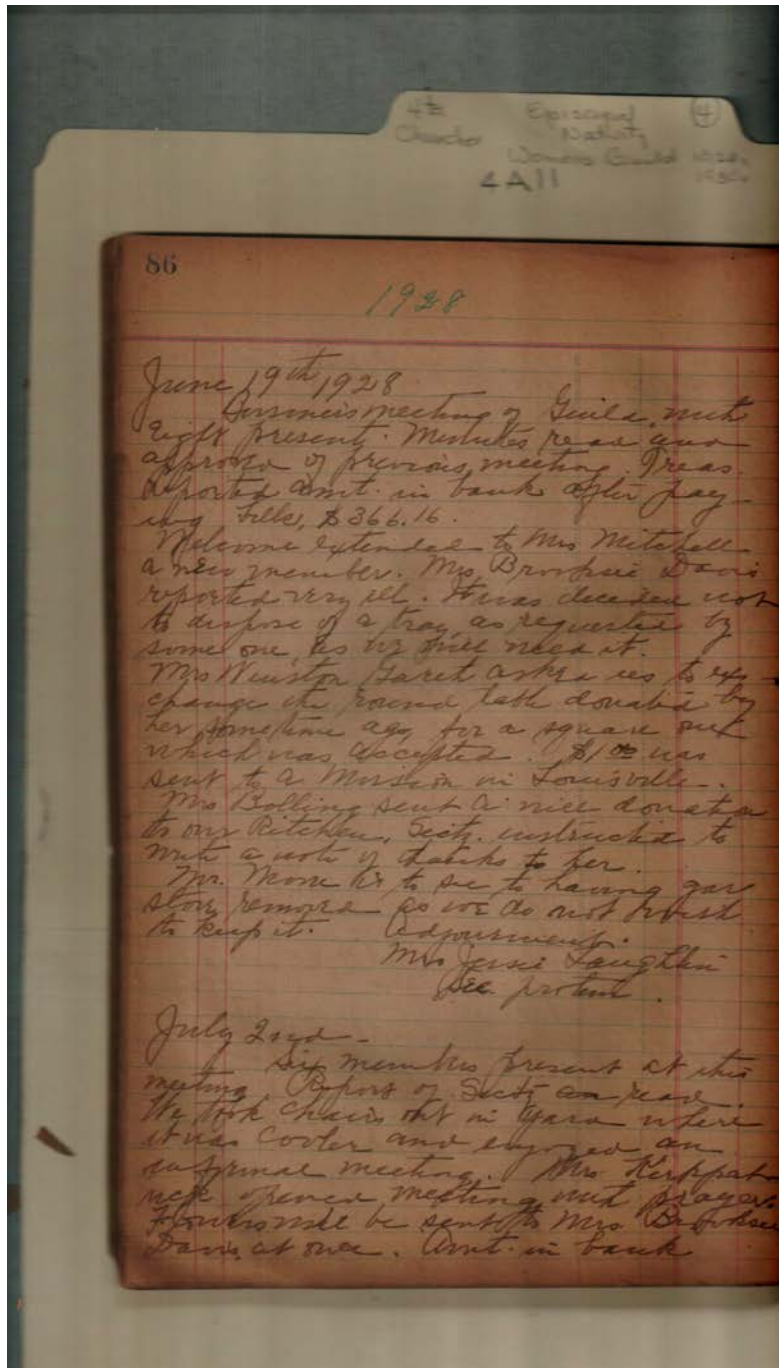 4th Episcopal 4
Church Nativity
Womens Guild 1928-
4A11
86
1928
June 19th 1928
Business meeting of Guild, with
eight present. Minutes read and
approved of previous meeting. Treas.
reported amt. in bank after pay-
ing bills, $366.16.
Welcome extended to Mrs Mitchell
a new member. Mrs Brooksie Davis
reported very ill. It was decided not
to dispose of a tray, as requested by
some one, as we will need it.
Mrs Winston asked us to ex-
change the round table donated by
her sometime ago, for a square one
which was accepted. $1.00 was
sent to a Mission in Louisville.
Mrs Bolling sent a nice donation
to our Kitchen, Secty. instructed to
write a note of thanks to her.
Mr. Moore is to see to having gas
stove removed as we do not wish
to keep it. Adjournment.
Mrs Jessie Laughlin
Sec. protem.
July 2nd -
Six members present at this
meeting. Report of Secty read.
We took chairs out in yard where
it was cooler and enjoyed an
informal meeting. Mrs Kirkpat-
rick opened meeting with prayer.
Flowers will be sent to Mrs. Brooksie
Davis, at once. Amt. in bank